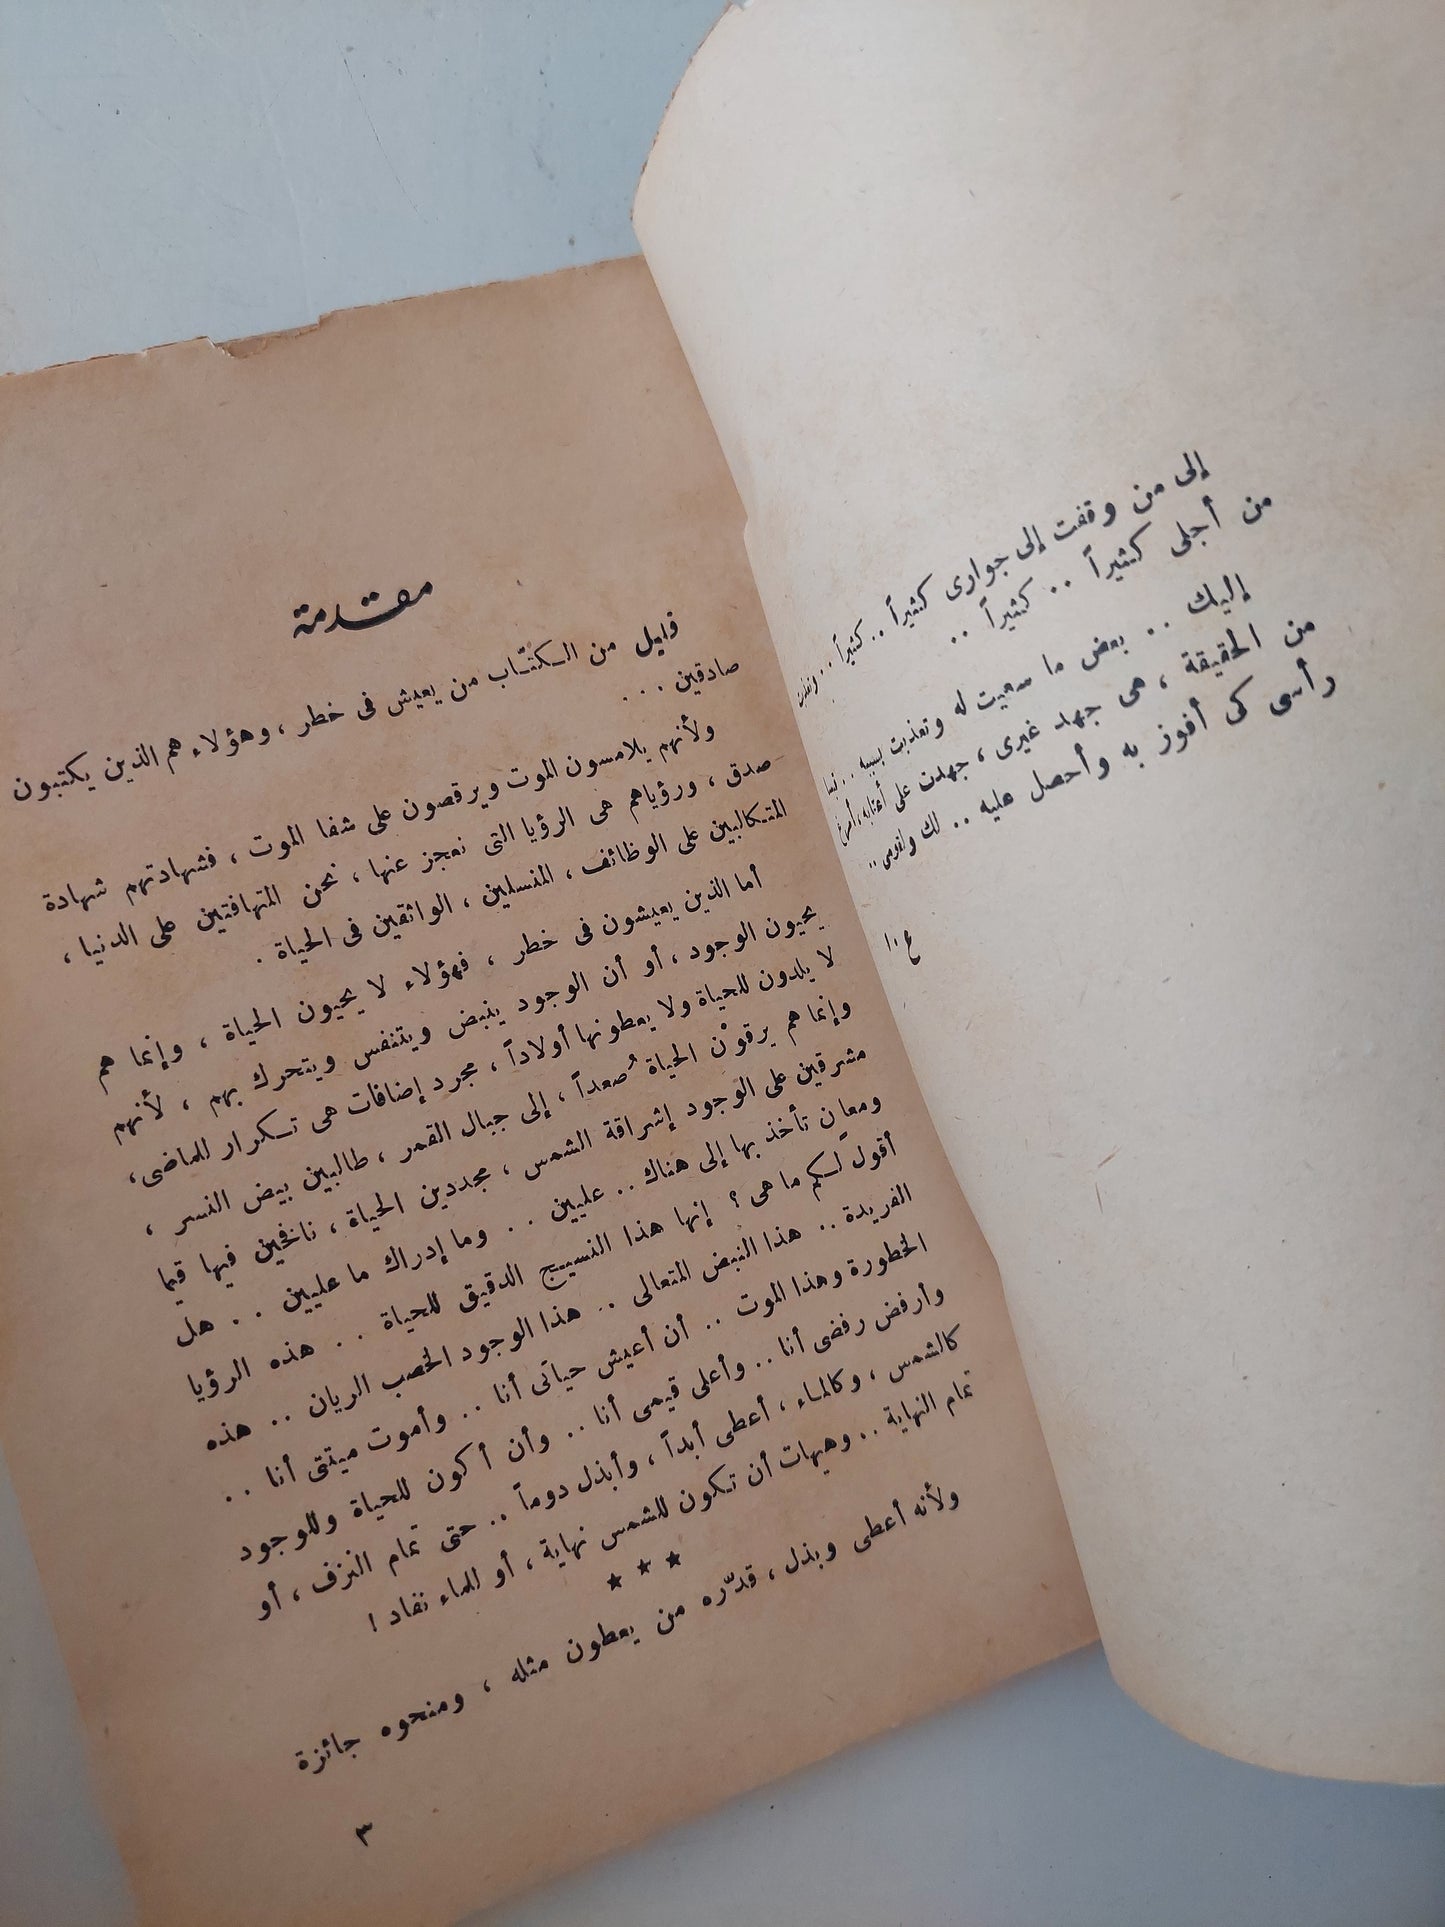 إلى من وقفت إلى جوارى كثيراً .. كثيراً ..
من أجلى كثيراً .. كثيراً ..
إليك .. بعض ما سعيت له وتعذبت بسببه ..
من الحقيقة ، هى جهد غيرى ، جهدت على أعتابه ،
رأسى كى أفوز به وأحصل عليه .. لك
مقدمة
قليل من الكتّاب من يعيش فى خطر ، وهؤلاء هم الذين يكتبون
صادقين . . .
ولأنهم يلامسون الموت ويرقصون على شفا الموت ، فشهادتهم شهادة
صدق ، ورؤياهم هى الرؤيا التى نعجز عنها ، نحن المتهافتين على الدنيا ،
المتكالبين على الوظائف ، المنسلين ، الواثقين فى الحياة .
أما الذين يعيشون فى خطر ، فهؤلاء لا يحيون الحياة ، وإنما هم
يحيون الوجود ، أو أن الوجود ينبض ويتنفس ويتحرك بهم ، لأنهم
لا يلدون للحياة ولا يعطونها أولاداً ، مجرد إضافات هى تكرار للماضى ،
وإنما هم يرقوْن الحياة صُعداً ، إلى جبال القمر ، طالبين بيض النسر ،
مشرقين على الوجود إشراقة الشمس ، مجددين الحياة ، نافخين فيها قيما
ومعان تأخذ بها إلى هناك .. عليين . . وما إدراك ما عليين . . هل
أقول لكم ما هى ؟ إنها هذا النسيج الدقيق للحياة . . هذه الرؤيا
الفريدة .. هذا النبض المتعالى .. هذا الوجود الخصب الريان .. هذه
الخطورة وهذا الموت .. أن أعيش حياتى أنا .. وأموت ميتتى أنا ..
وأرفض رفضى أنا .. وأعلى قيمى أنا .. وأن أكون للحياة وللوجود
كالشمس ، وكالماء ، أعطى أبداً ، وأبذل دوماً .. حتى تمام النزف ، أو
تمام النهاية .. وهيهات أن تكون للشمس نهاية ، أو للماء نفاد !
★ ★ ★
ولأنه أعطى وبذل ، قدّره من يعطون مثله ، ومنحوه جائزة
٣